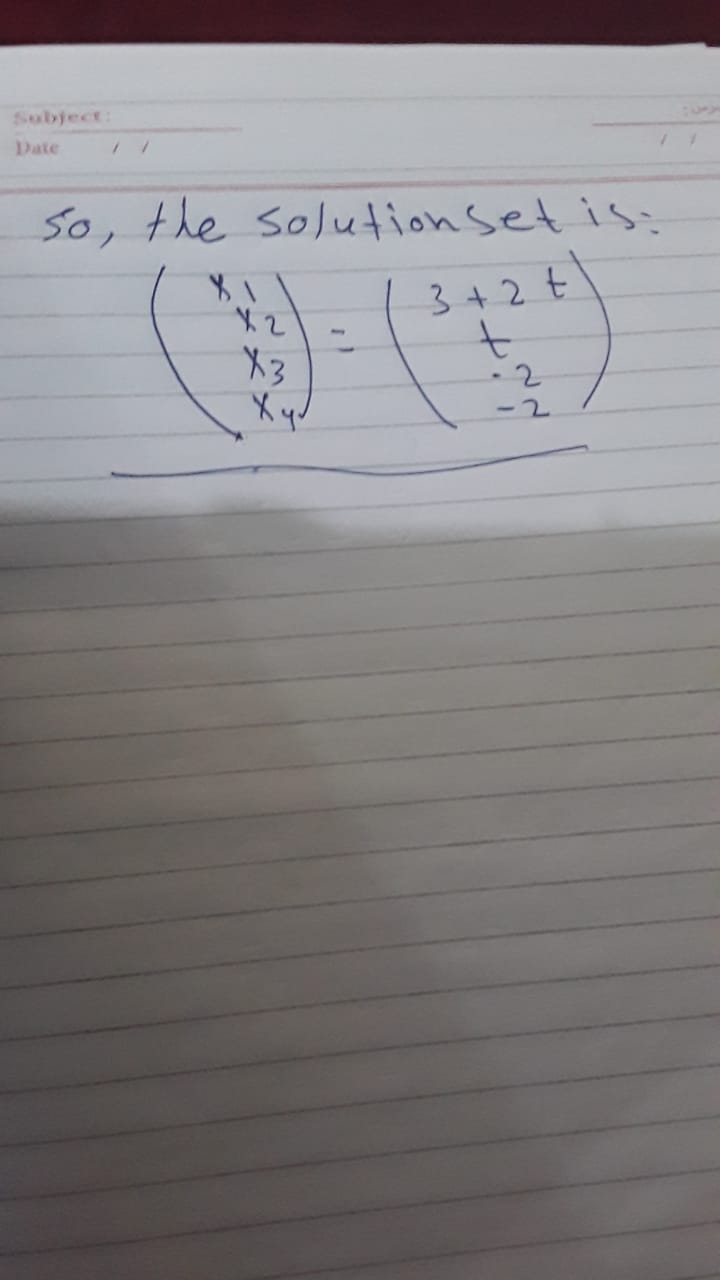 Subject:
Date / /
/ /
So, the solution set is:
x1 = 3 + 2t
x2 t
x3 -2
x4 -2